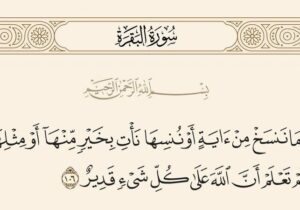 سُورَةُ البَقَرَةِ
بِسْمِ اللَّهِ الرَّحْمَٰنِ الرَّحِيمِ
مَا نَنسَخْ مِنْ ءَايَةٍ أَوْ نُنسِهَا نَأْتِ بِخَيْرٍ مِّنْهَآ أَوْ مِثْلِهَ
مْ تَعْلَمْ أَنَّ ٱللَّهَ عَلَىٰ كُلِّ شَىْءٍ قَدِيرٌ ١٠٦